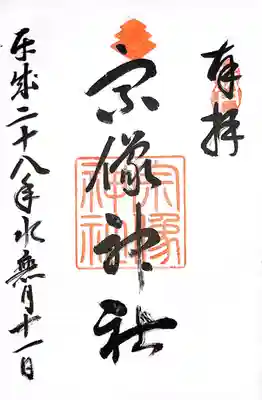 奉拝
宗像神社
宗像神社
平成二十八年水無月十一日